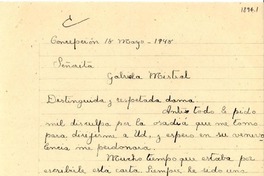 1894.1
Concepción 18 Mayo-1948
Señorita
Gabriela Mistral
Distinguida y respetada dama
Ante todo le pido
mil disculpa por la osadia que me tomo
para dirijirme a Ud, y espero en su
me perdonara.
Mucho tiempo que estaba por
escribirle esta carta siempre he sido una